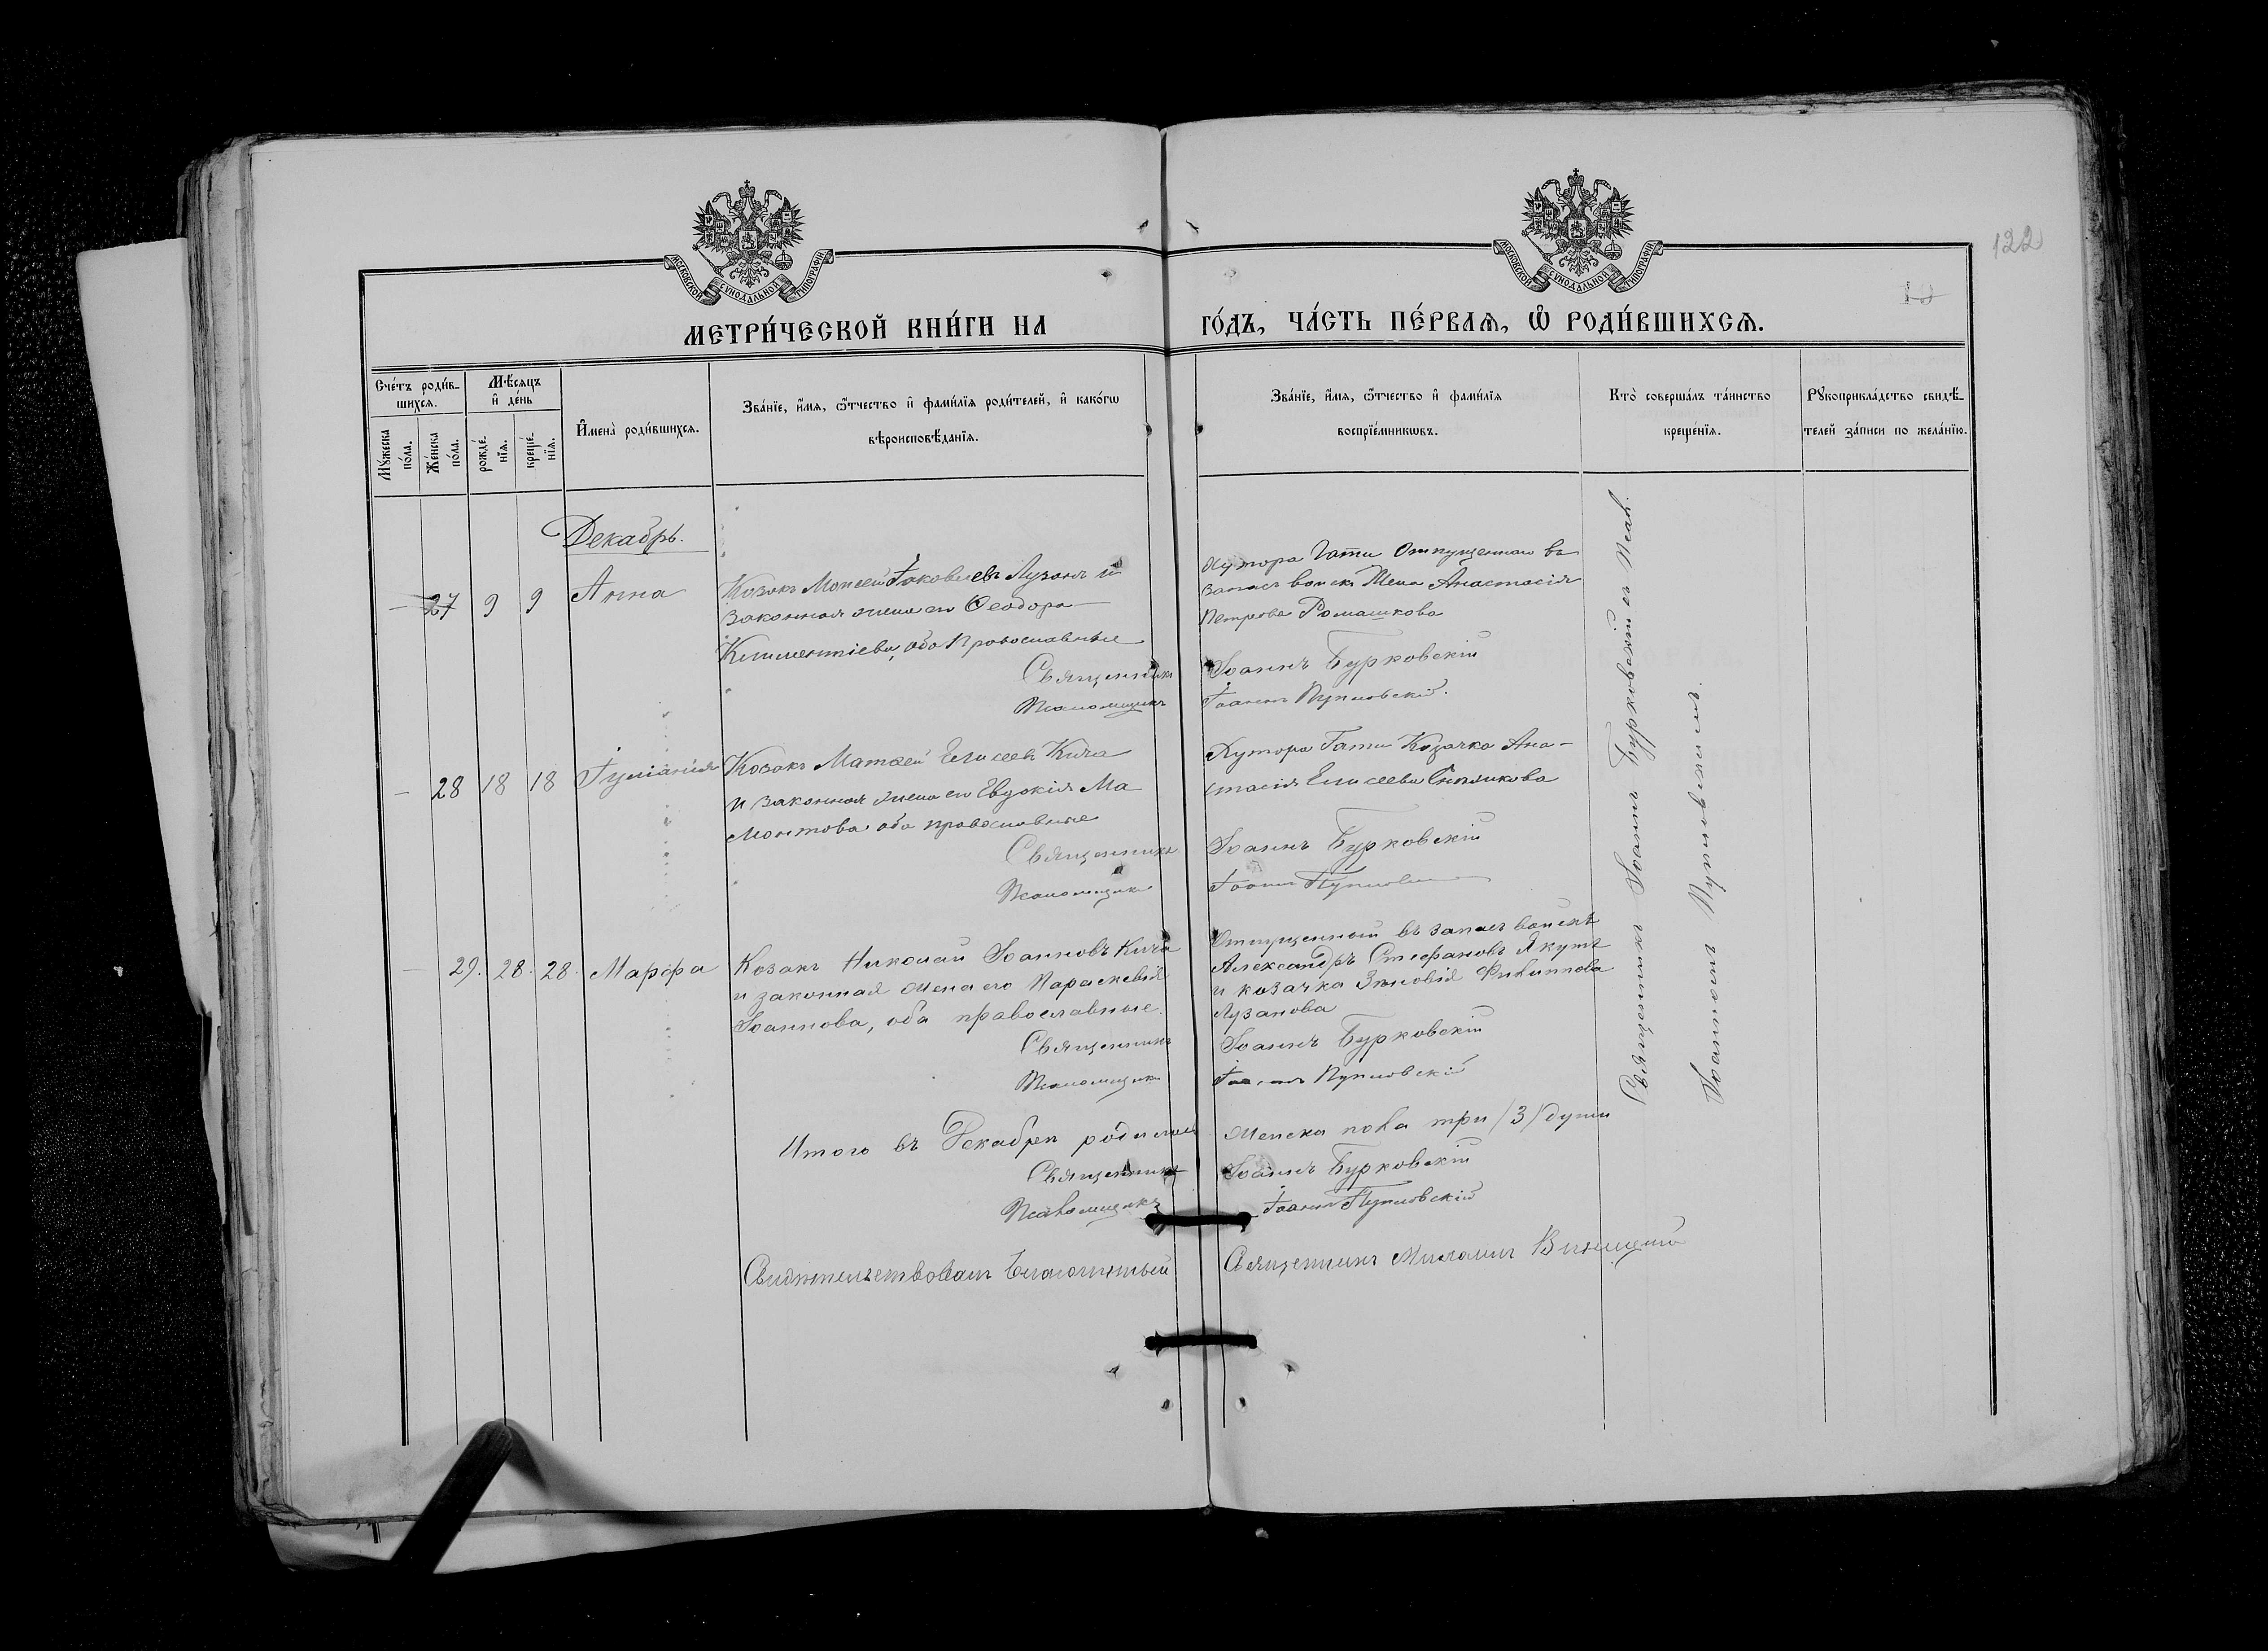 122
МОСКОВСКОЙ СѴНОДАЛЬНОЙ ТИПОГРАФІИ
МОСКОВСКОЙ СѴНОДАЛЬНОЙ ТИПОГРАФІИ
МЕТРИ́ЧЕСКОЙ КНИ́ГИ НА ГО́ДЪ, ЧА́СТЬ ПЕ́РВАѦ, Ѽ РОДИ́ВШИХСѦ.
Сче́тъ роди́в-
шихсѧ.
Мꙋ́жеска
по́ла.
Же́нска
по́ла.
Мѣ́сѧцъ
и҆ де́нь
рожде́-
нїѧ.
креще́-
нїѧ.
И҆мена̀ роди́вшихсѧ.
Зва́нїе, и҆́мѧ, ѻ҆́тчество и҆ фами́лїѧ роди́телей, и҆ како́гѡ
вѣроисповѣ́данїѧ.
Зва́нїе, и҆́мѧ, ѻ҆́тчество и҆ фами́лїѧ
воспрїе́мникѡвъ.
Кто̀ соверша́лъ та́инство
креще́нїѧ.
Рꙋкоприкла́дство свидѣ́-
телей за́писи по жела́нїю.
Декабрь.
— 27 9 9 Анна
Козакъ Моисей Іаковлевъ Лузанъ и
законная жена его Ѳеодора
Климентіева, оба православные
Священникъ
Псаломщикъ
Хутора Гати Отпущеннаго въ
запасъ войскъ Жена Анастасія
Петрова Ромашкова
Іоаннъ Бурковскій
Іоаннъ Пупловскій.
— 28 18 18 Іуліанія
Козакъ Матѳей Елисеевъ Кича
и законная жена его Евдокія Ма
монтова оба православные
Священникъ
Псаломщикъ
Хутора Гати Козачка Ана-
стасія Елисеева
Іоаннъ Бурковскій
Іоаннъ
— 29. 28. 28. Марѳа
Козакъ Николай Іоанновъ Кича
и законная жена его Параскевія
Іоаннова, оба православные.
Священникъ
Псаломщикъ
Отпущенный въ запасъ войскъ
Александръ Стефановъ Якутъ
и козачка Зиновія Филиппова
Лузанова
Іоаннъ Бурковскій
Іоаннъ Пупловскій
Итого въ Декабрѣ родилось женска пола три /3/ души
Священникъ Іоаннъ Бурковскій
Псаломщикъ Іоаннъ Пупловскій
Свидѣтельствовалъ Благочинный Священникъ
Священникъ Іоаннъ Бурковскій съ Псал.
Іоанномъ Пупловскимъ.